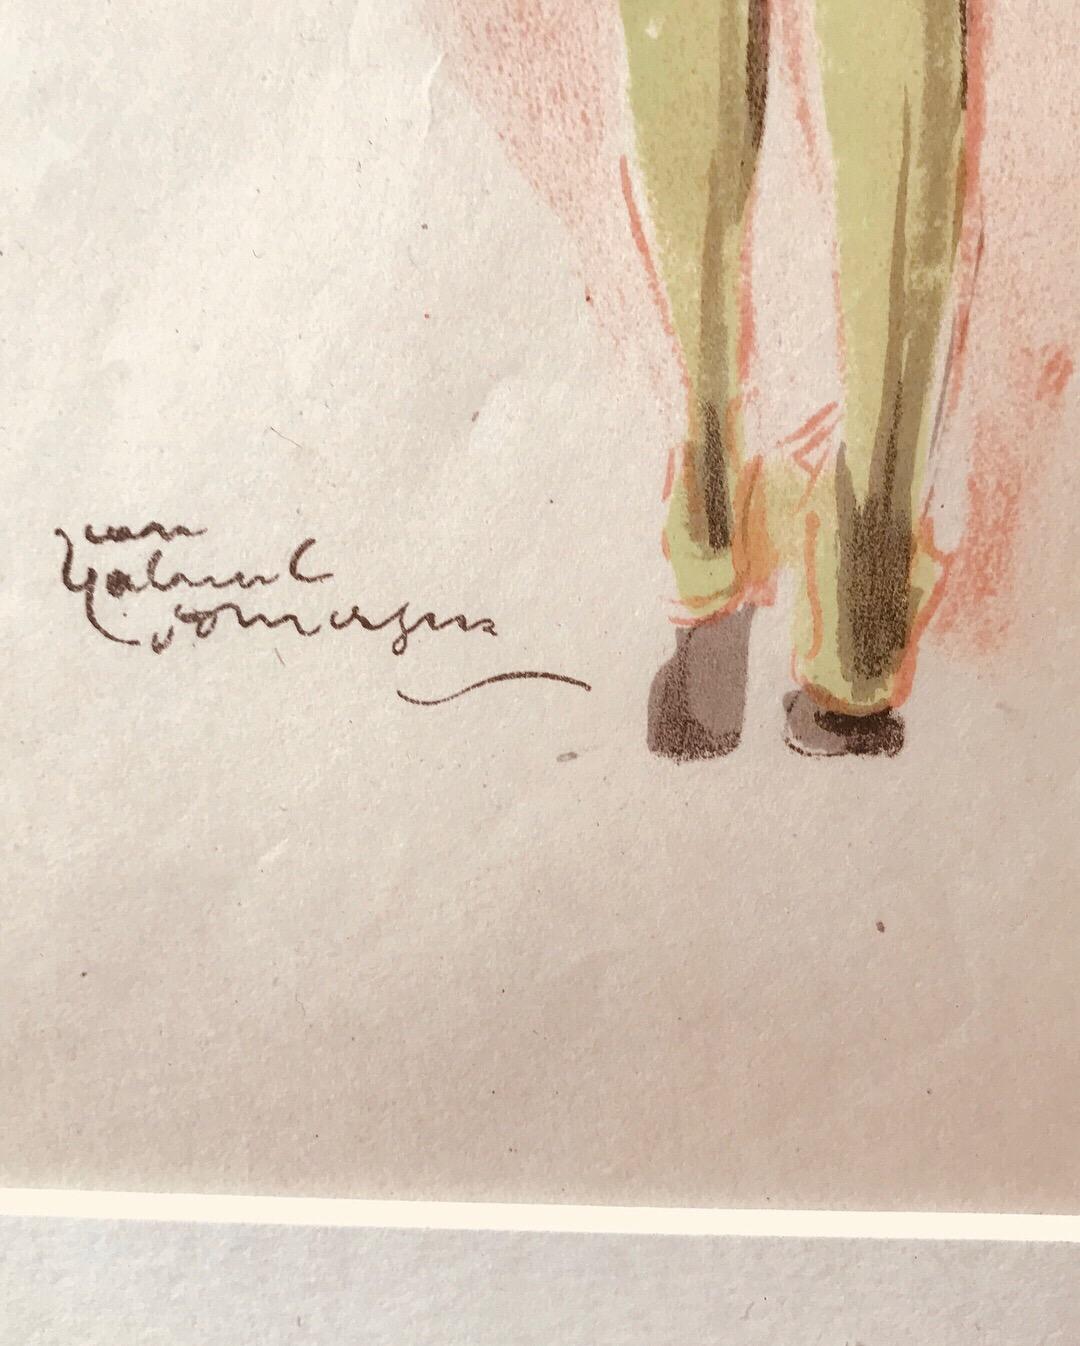 jean
gabriel
domergue